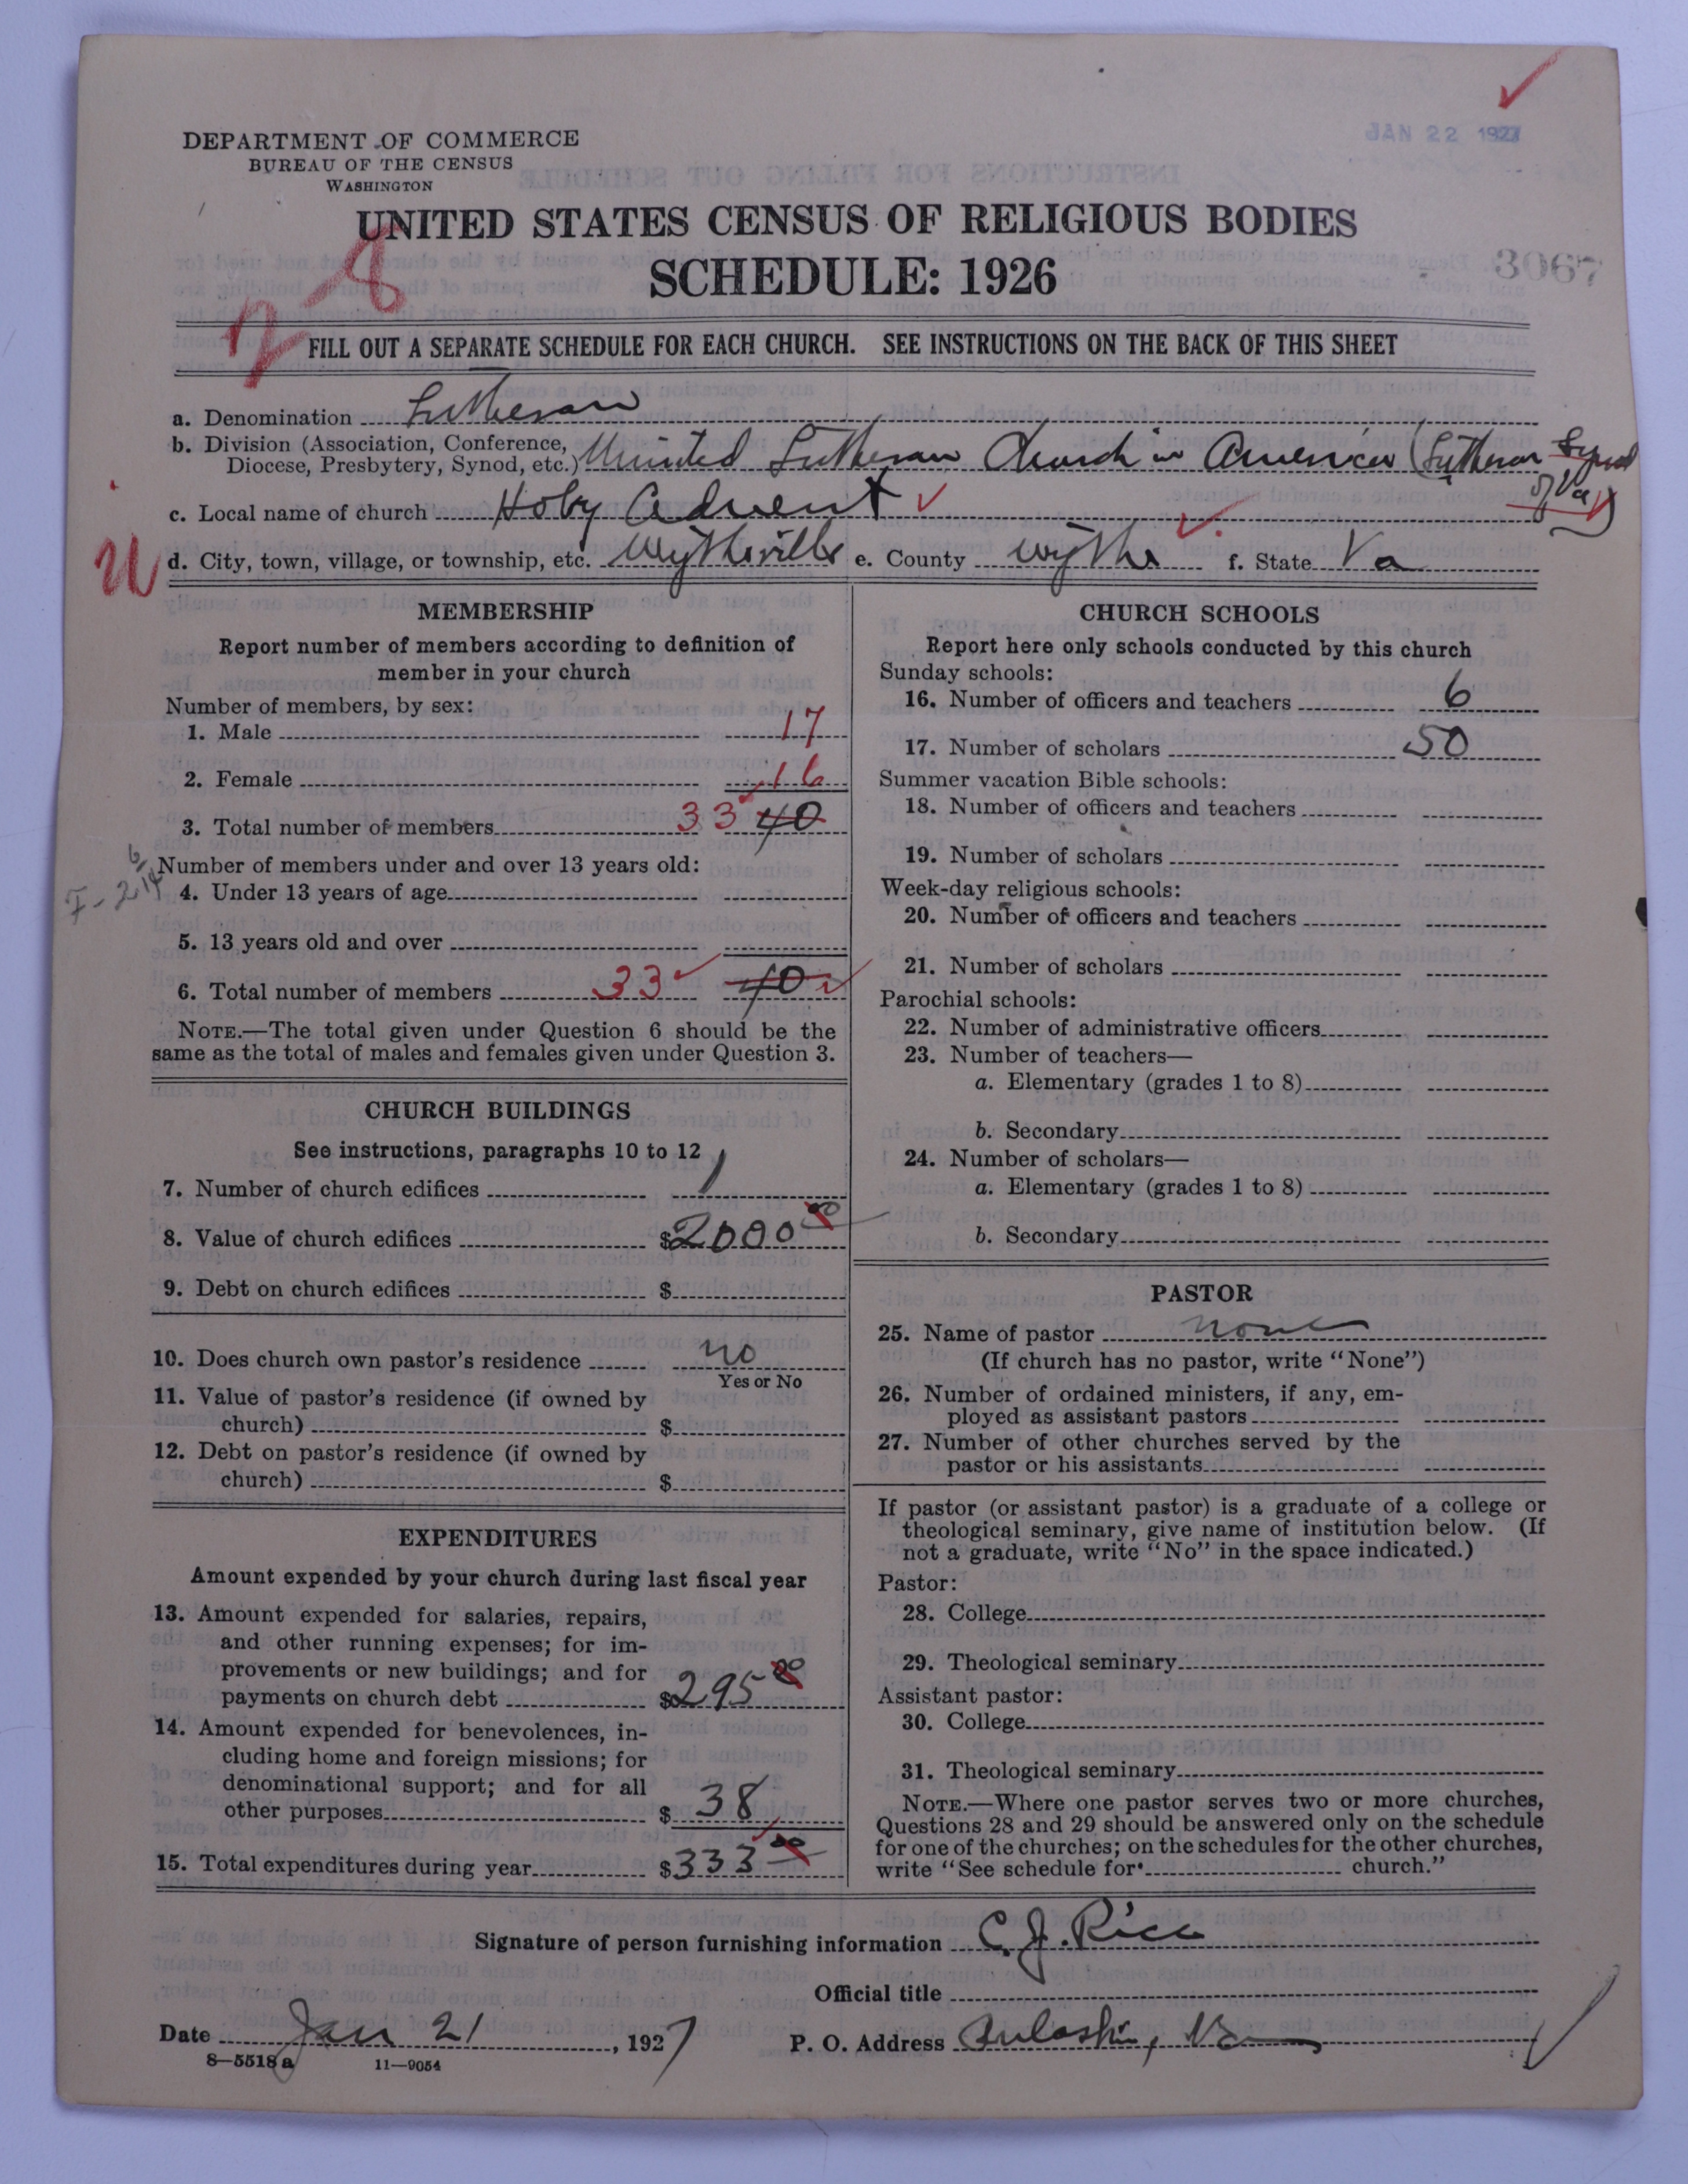 JAN 22 1927
DEPARTMENT OF COMMERCE
BUREAU OF THE CENSUS
WASHINGTON
UNITED STATES CENSUS OF RELIGIOUS BODIES
SCHEDULE: 1926
3067
2-8
FILL OUT A SEPARATE SCHEDULE FOR EACH CHURCH. SEE INSTRUCTIONS ON THE BACK OF THIS SHEET
a. Denomination Lutheran
b. Division (Association, Conference,
Diocese, Presbytery, Synod, etc.) United Lutheran Church in America (Lutheran Synod
of Va)
c. Local name of church Holy Advent
d. City, town, village, or township, etc. Wytheville e. County Wythe f. State Va
MEMBERSHIP
Report number of members according to definition of
member in your church
Number of members, by sex:
1. Male 17
2. Female 16
3. Total number of members 33 40
Number of members under and over 13 years old:
4. Under 13 years of age
5. 13 years old and over
6. Total number of members 33 40
NOTE.—The total given under Question 6 should be the
same as the total of males and females given under Question 3.
CHURCH BUILDINGS
See instructions, paragraphs 10 to 12
7. Number of church edifices 1
8. Value of church edifices $2000 00
9. Debt on church edifices $
10. Does church own pastor's residence no
Yes or No
11. Value of pastor's residence (if owned by
church) $
12. Debt on pastor's residence (if owned by
church) $
EXPENDITURES
Amount expended by your church during last fiscal year
13. Amount expended for salaries, repairs,
and other running expenses; for im-
provements or new buildings; and for
payments on church debt $295 00
14. Amount expended for benevolences, in-
cluding home and foreign missions; for
denominational support; and for all
other purposes $ 38
15. Total expenditures during year $333 00
CHURCH SCHOOLS
Report here only schools conducted by this church
Sunday schools:
16. Number of officers and teachers 6
17. Number of scholars 50
Summer vacation Bible schools:
18. Number of officers and teachers
19. Number of scholars
Week-day religious schools:
20. Number of officers and teachers
21. Number of scholars
Parochial schools:
22. Number of administrative officers
23. Number of teachers—
a. Elementary (grades 1 to 8)
b. Secondary
24. Number of scholars—
a. Elementary (grades 1 to 8)
b. Secondary
PASTOR
25. Name of pastor none
(If church has no pastor, write "None")
26. Number of ordained ministers, if any, em-
ployed as assistant pastors
27. Number of other churches served by the
pastor or his assistants
If pastor (or assistant pastor) is a graduate of a college or
theological seminary, give name of institution below. (If
not a graduate, write "No" in the space indicated.)
Pastor:
28. College
29. Theological seminary
Assistant pastor:
30. College
31. Theological seminary
NOTE.—Where one pastor serves two or more churches,
Questions 28 and 29 should be answered only on the schedule
for one of the churches; on the schedules for the other churches,
write "See schedule for church."
Signature of person furnishing information C. J. Rice
Official title
Date Jan 21, 1927 P. O. Address Pulaski, Va
8—5518 a 11—9054